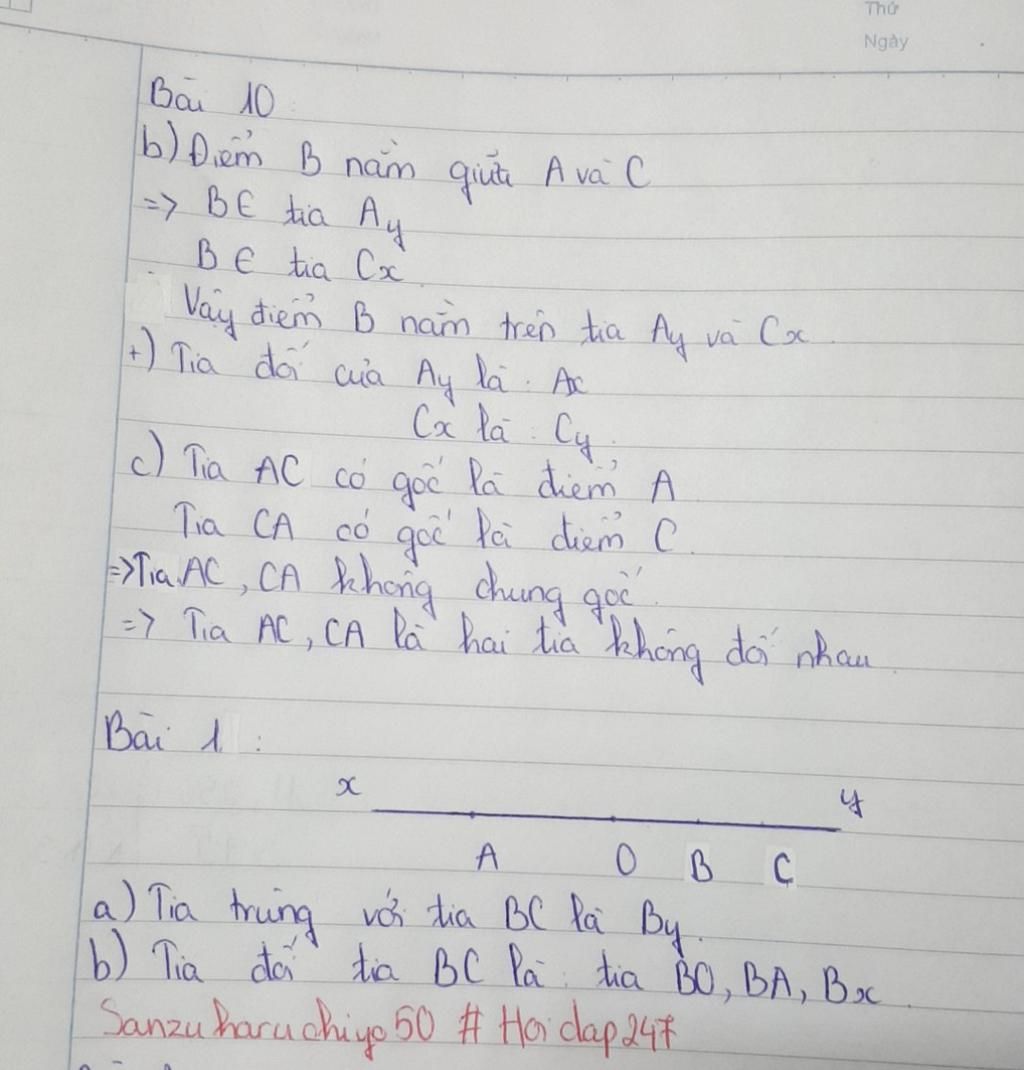 Thứ
Ngày
Bài 10
b) Điểm B nằm giữa A và C
=> B ∈ tia Ay
B ∈ tia Cx
Vậy điểm B nằm trên tia Ay và Cx.
+) Tia đối của Ay là: Ax
Cx là: Cy.
c) Tia AC có gốc là điểm A
Tia CA có gốc là điểm C.
=> Tia AC, CA không chung gốc.
=> Tia AC, CA là hai tia không đối nhau.
Bài 1:
x y
A O B C
a) Tia trùng với tia BC là By.
b) Tia đối tia BC là: tia BO, BA, Bx.
Sanzuharuchiyo50 # Hoidap247